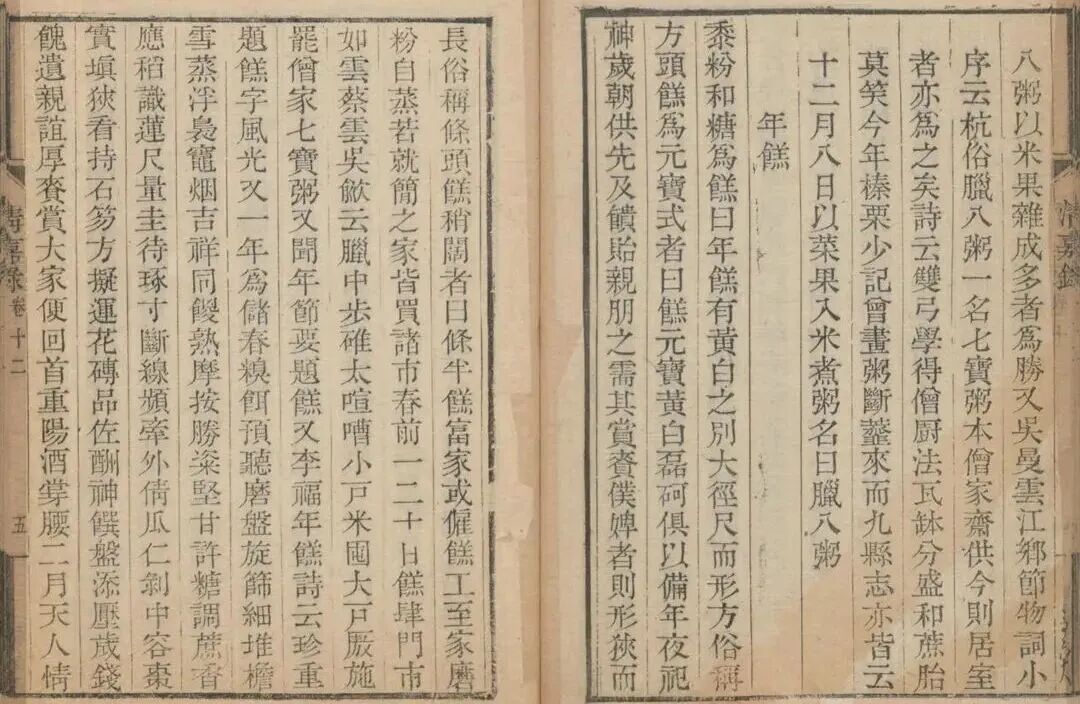 清嘉錄
八粥以米果雜成多者爲勝又吳曼雲江鄉節物詞小
序云杭俗臘八粥一名七寶粥本僧家齋供今則居室
者亦爲之矣詩云雙弓學得僧厨法瓦缽分盛和蔗胎
莫笑今年榛栗少記曾畫粥斷虀來而九縣志亦皆云
十二月八日以菜果入米煮粥名曰臘八粥
年餻
黍粉和糖爲餻曰年餻有黃白之別大徑尺而形方俗稱
方頭餻爲元寶式者曰餻元寶黃白磊砢俱以備年夜祀
神歲朝供先及饋貽親朋之需其賞賚僕婢者則形狹而
長俗稱條頭餻稍闊者曰條半餻富家或僱餻工至家磨
粉自蒸若就簡之家皆買諸市春前一二十日餻肆門市
如雲蔡雲吳歈云臘中步碓太喧嘈小戸米囤大戸厫施
罷僧家七寶粥又聞年節要題餻又李福年餻詩云珍重
題餻字風光又一年爲儲春糗餌預聽磨盤旋篩細堆檐
雪蒸浮裊竈烟吉祥同饅熟摩按勝粢堅甘許糖調蔗香
應稻識蓮尺量圭待琢寸斷線頻牽外倩瓜仁剝中容棗
實塡狹看持石笏方擬運花磚品佐酬神饌盤添壓歲錢
餽遺親誼厚賚賞大家便回首重陽酒撐腰二月天人情
清嘉錄 卷十二 五